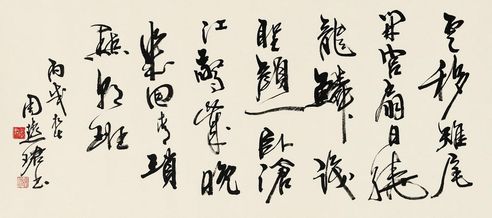 雲移雉尾
開宮扇日繞
龍鱗識
聖顏一臥滄
江驚歲晚
幾回青瑣
點朝班
丙戌
周
書